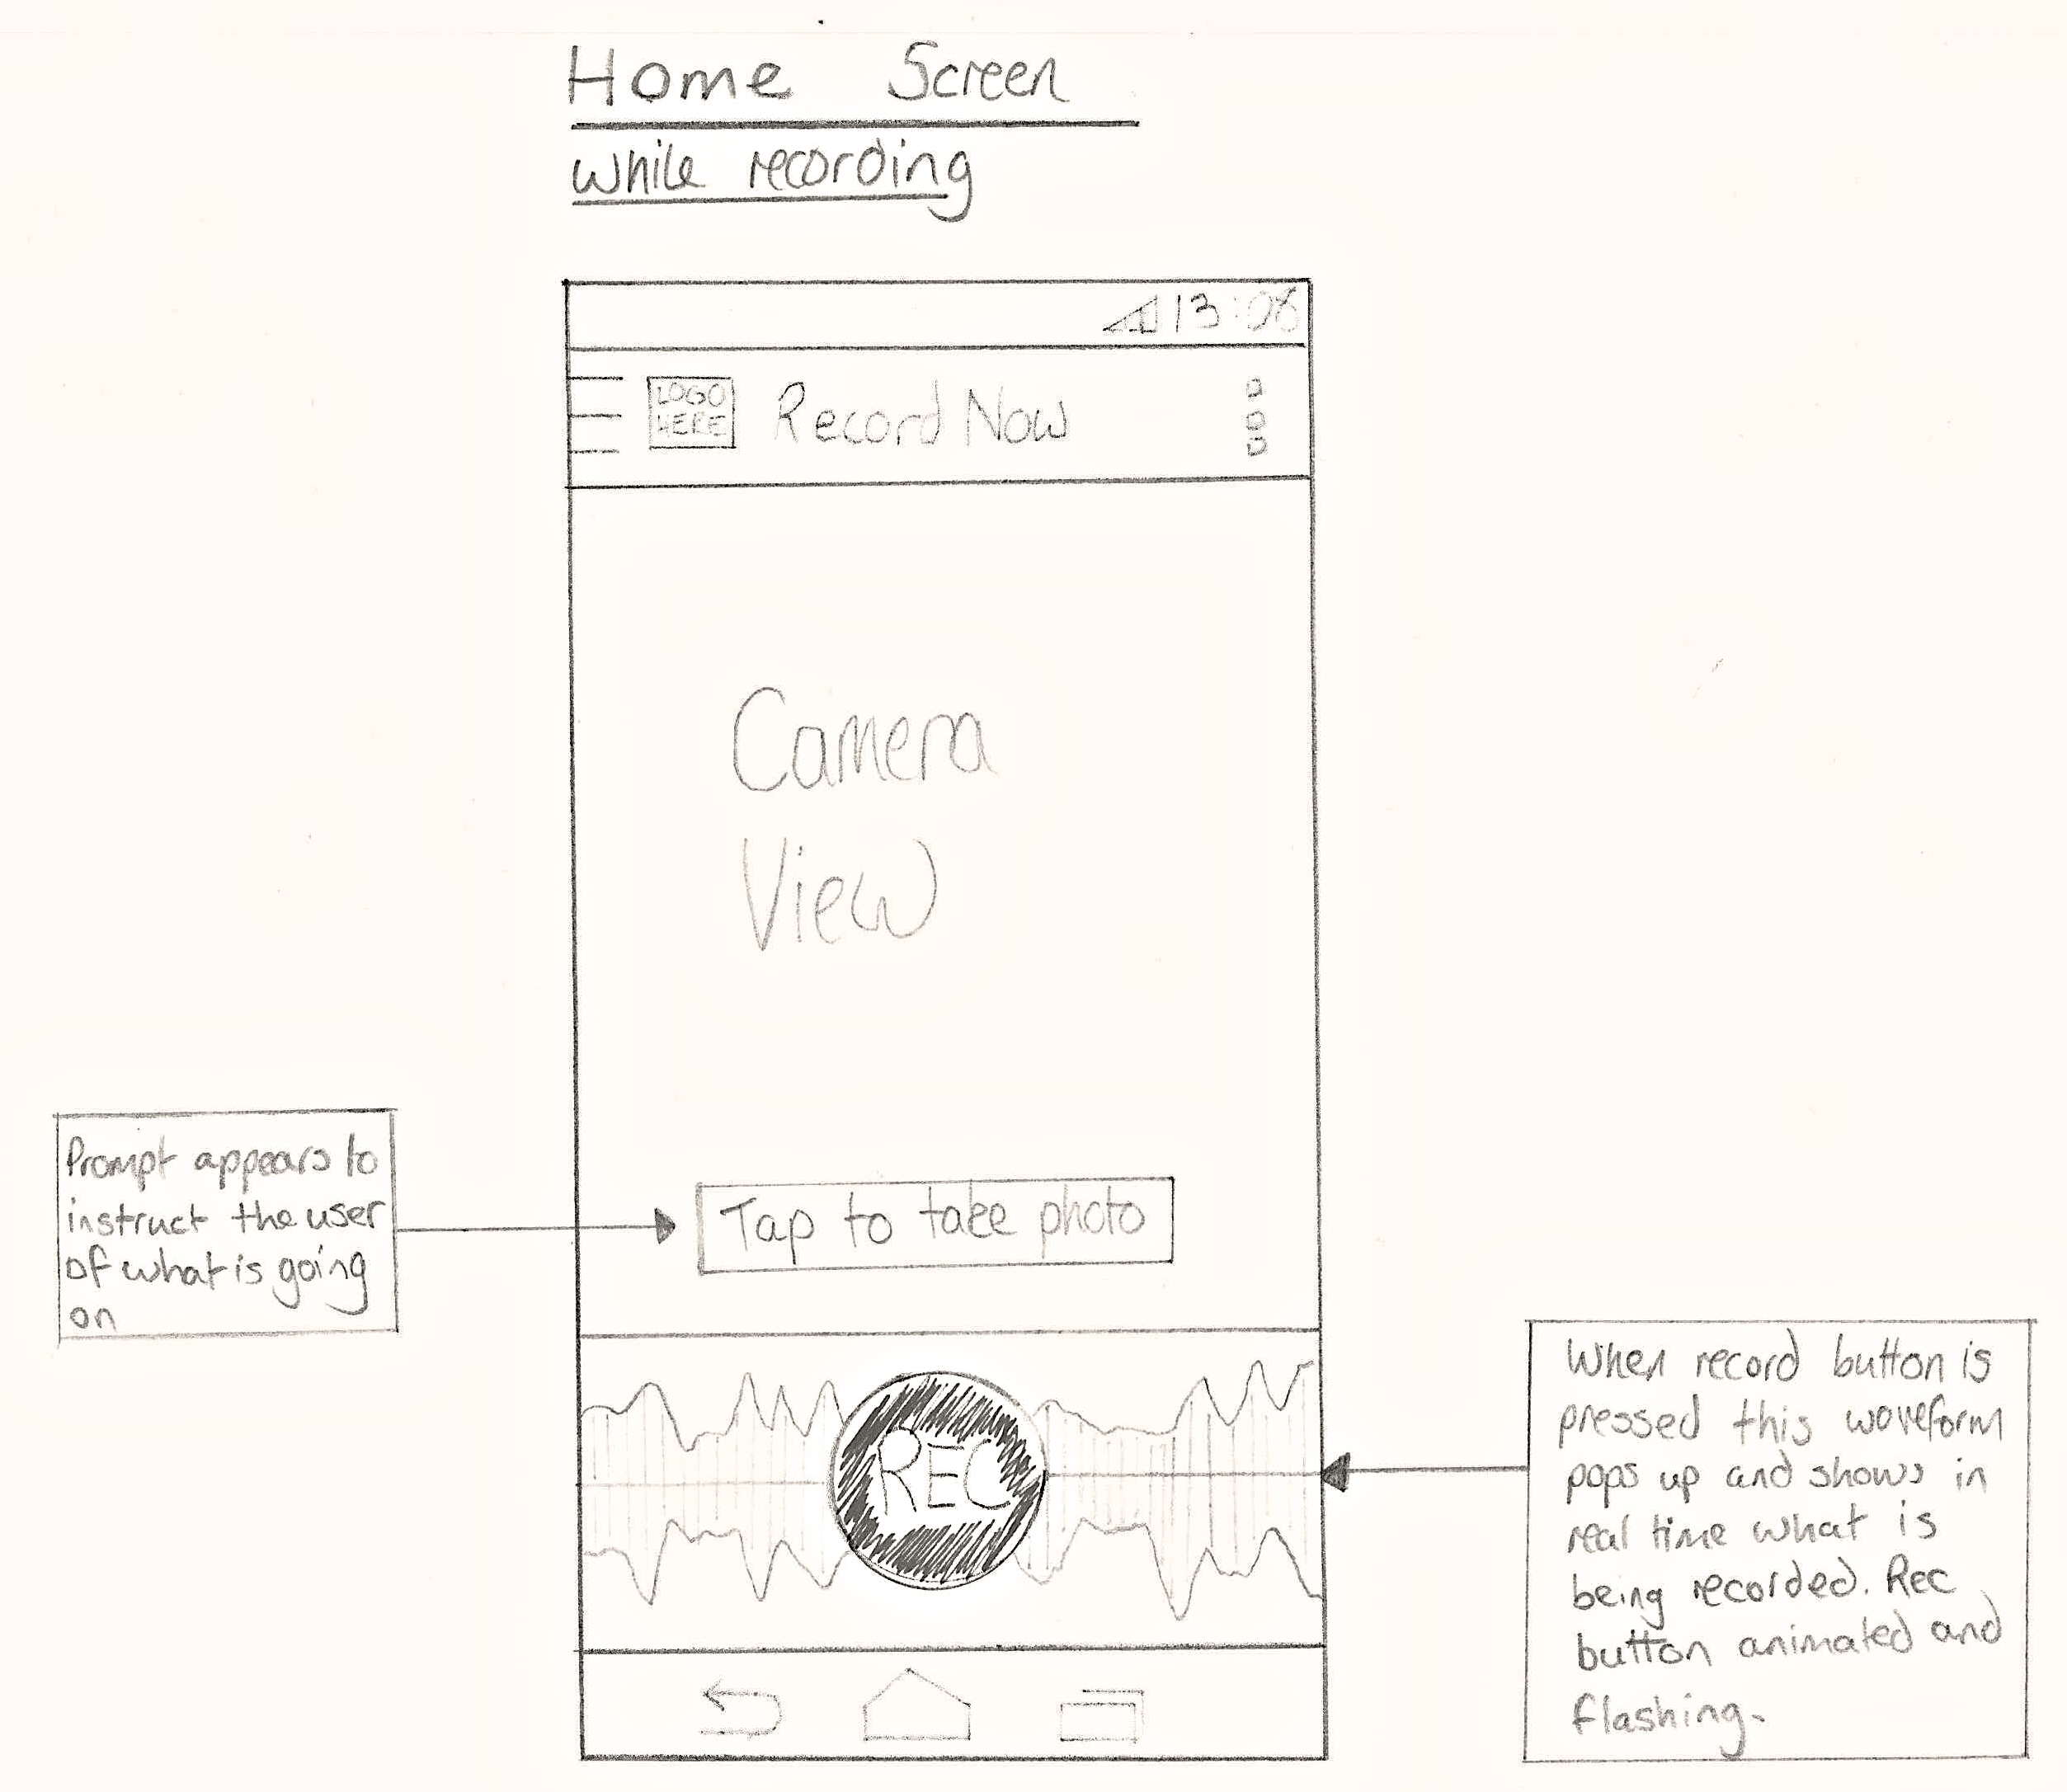 Home Screen
while recording
13:08
LOGO
HERE
Record Now
Camera
View
Prompt appears to
instruct the user
of what is going
on
Tap to take photo
REC
When record button is
pressed this waveform
pops up and shows in
real time what is
being recorded. Rec
button animated and
flashing.